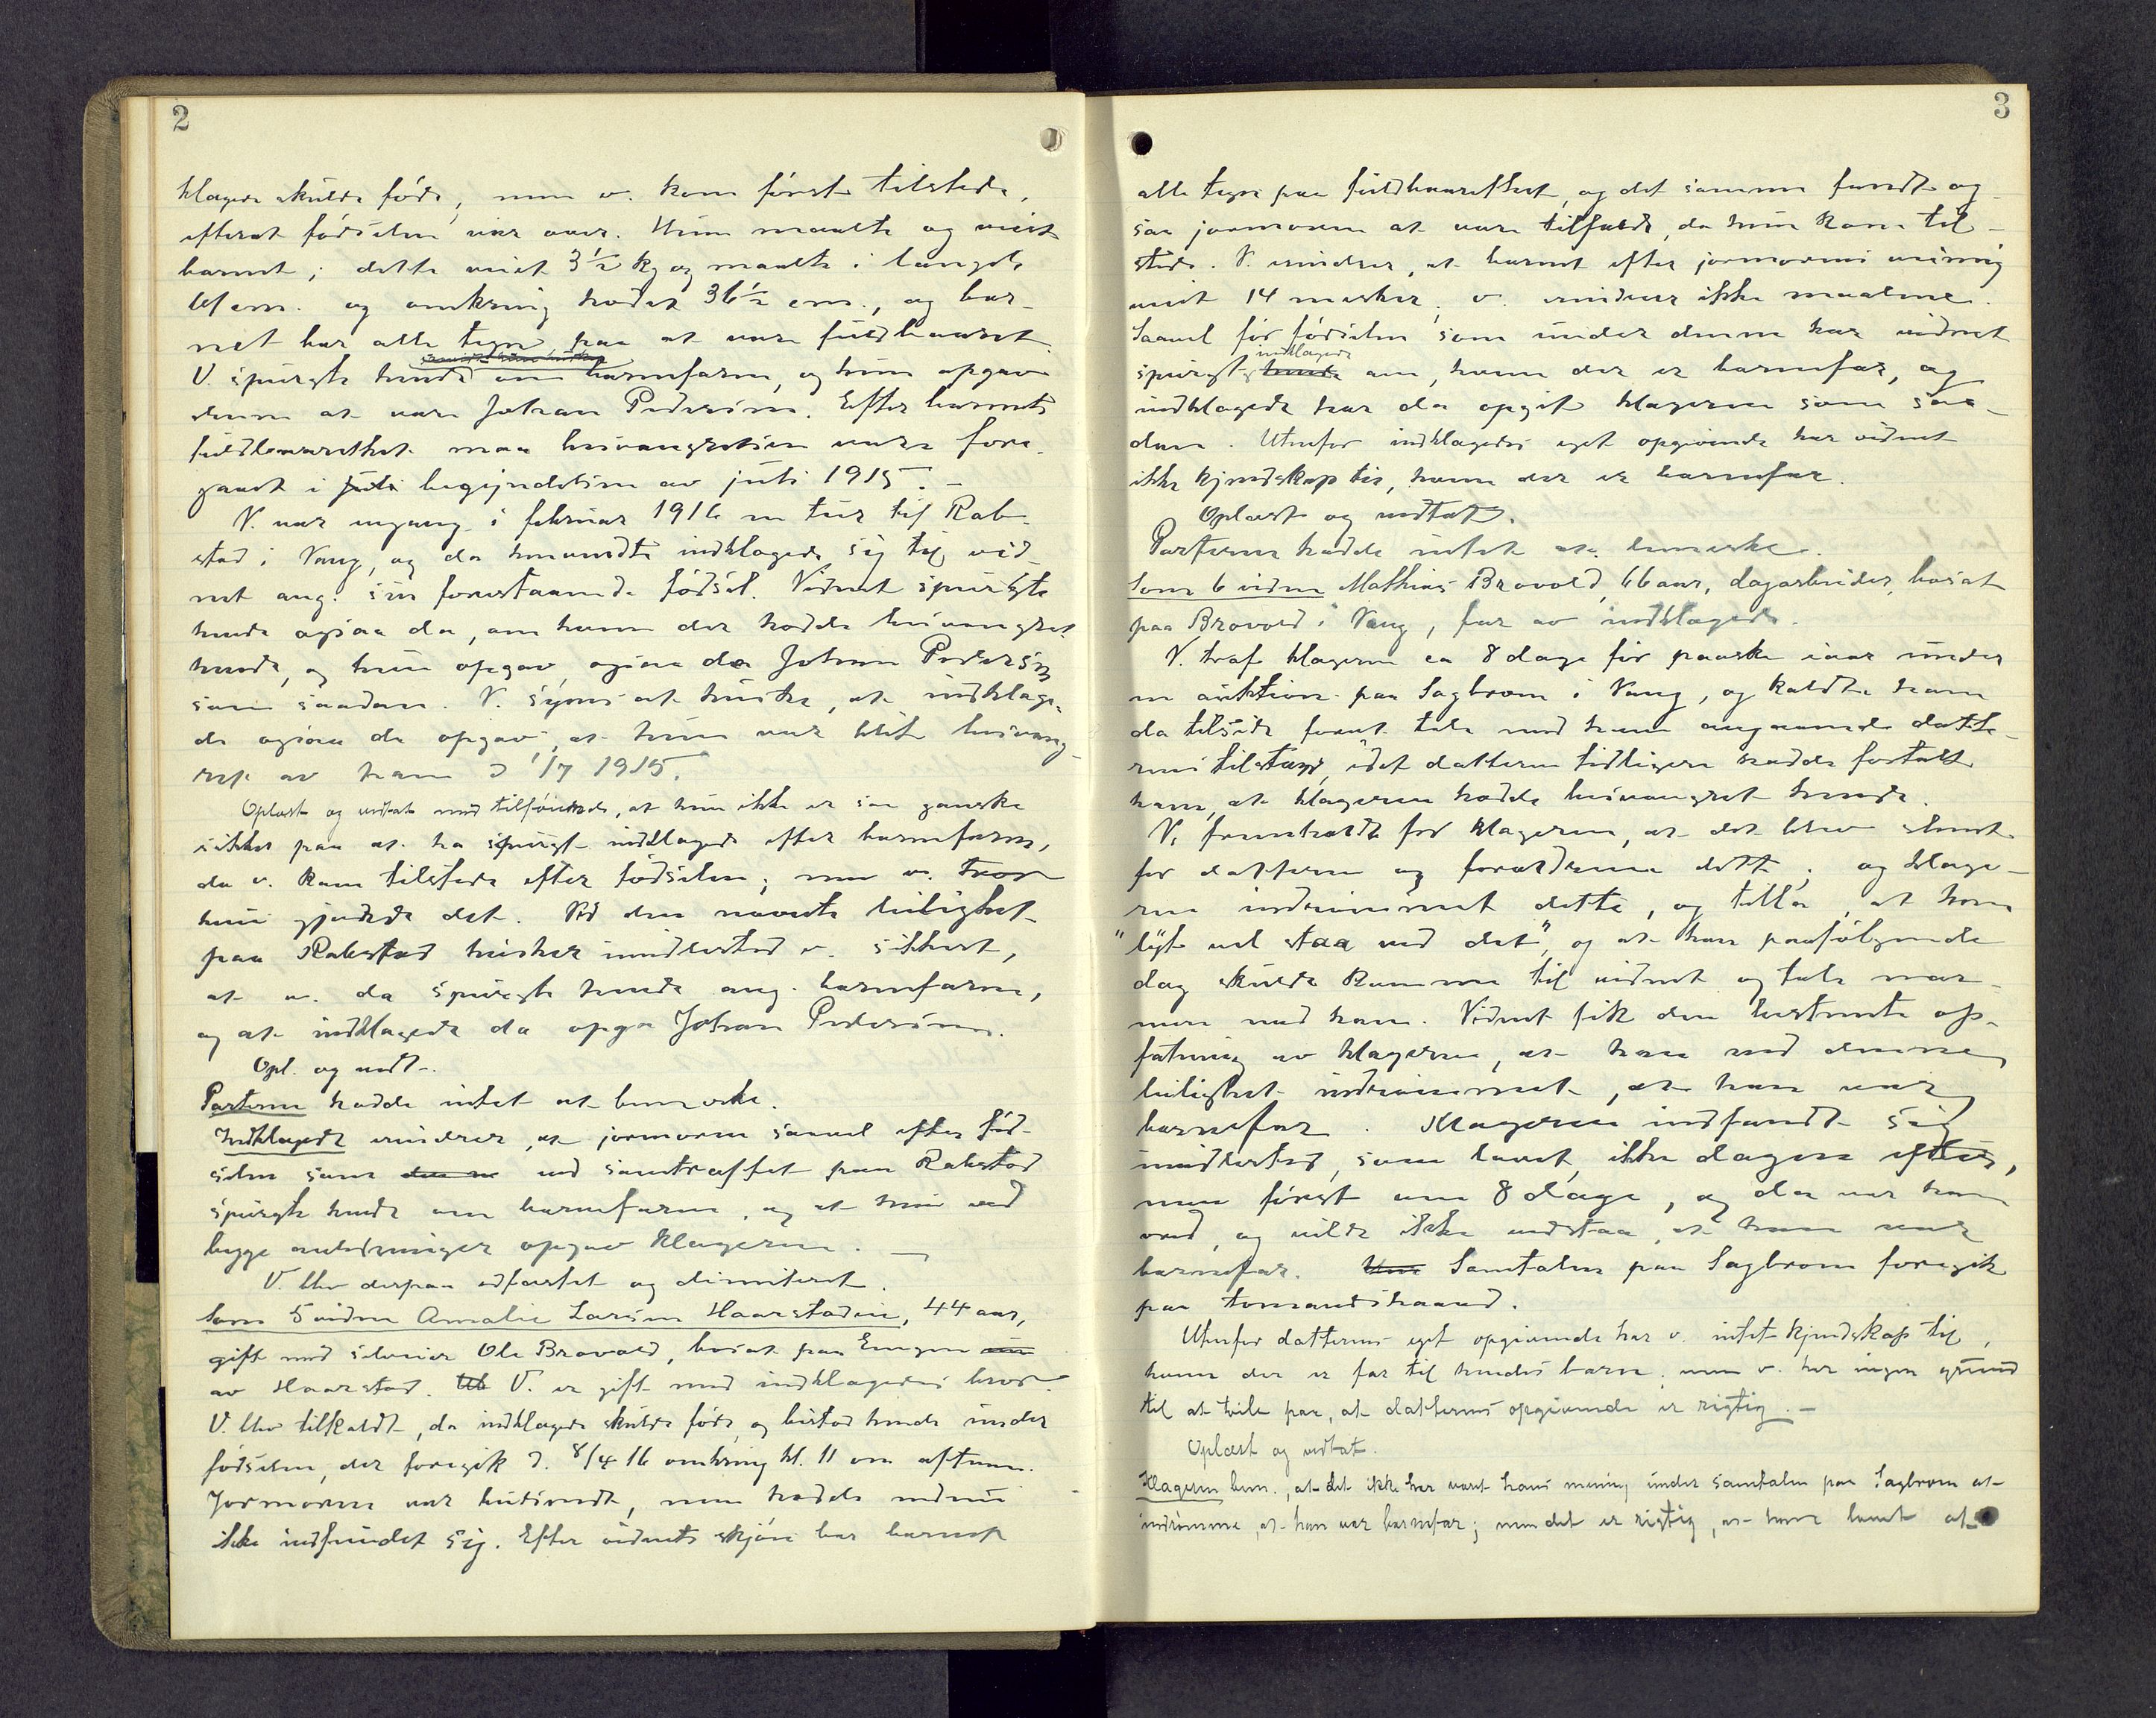 2
klagede skulde føde, men v. kom først tilstede,
efterat fødselen var over. Hun maalte og veiet
barnet; dette veiet 3½ kg og maalte i længde
51 cm. og omkring hodet 36½ cm., og bar-
net bar alle tegn paa at være fuldbaaret.
V. spurgte hende om barnefaren, og hun opgav
denne at være Johan Pedersen. Efter barnets
fuldbaarethet maa besvangrelsen være fore-
gaaet i juli begyndelsen av juli 1915. –
V. var engang i februar 1916 en tur til Rab-
stad i Vang, og da henvendte indklagede sig til vid-
net ang. sin forestaaende fødsel. Vidnet spurgte
hende ogsaa da, om hvem der hadde besvangret
hende, og hun opgav ogsaa da Johan Pedersen
som saadan. V. synes at huske, at indklage-
de ogsaa da opgav, at hun var blit besvang-
ret av ham d 1/7 1915.
Oplæst og vedtat med tilføiende, at hun ikke er saa ganske
sikker paa at ha spurgt indklagede efter barnefaren,
da v. kom tilstede efter fødselen; men v. tror
hun gjorde det. Ved den nævnte leilighet
paa Rabstad husker imidlertid v. sikkert,
at v. da spurgte hende ang. barnefaren,
og at indklagede da opga Johan Pedersen.
Opl. og vedt.
Parterne hadde intet at bemerke.
Indklagede erindrer, at jormoren saavel efter fød-
selen som den m ved sammentræffet paa Rabstad
spurgte hende om barnefaren, og at hun ved
begge anledninger opgav klageren. –
V. blev derpaa edfæstet og dimitteret.
Som 5 vidne Amalie Larsen Haarstadeie, 44 aar,
gift med selveier Ole Bravold, bosat paa Engen
av Haarstad. V. er gift med indklagedes bror.
V. blev tilkaldt, da indklagede skulde føde, og bistod hende under
fødselen, der foregik d. 8/4 16 omkring kl. 11 om aftenen.
Jormoren var budsendt, men hadde endnu
ikke indfundet sig. Efter vidnets skjøn bar barnet
3
alle tegn paa fuldbaarethet, og det samme fandt og-
saa jormoren at være tilfælde, da hun kom til-
stede. V. erindrer, at barnet efter jormorens mening
veiet 14 merker, v. erindrer ikke maalene.
Saavel før fødselen som under denne har vidnet
indklagede
spurgt hende om, hvem der er barnefar, og
indklagede har da opgit klageren som saa-
dan. Utenfor indklagedes eget opgivende har vidnet
ikke kjendskap til, hvem der er barnefar.
Oplæst og vedtat.
Parterne hadde intet at bemerke.
Som 6 vidne Mathias Bravold, 66 aar, dagarbeider, bosat
paa Bravold i Vang, far av indklagede.
V. traf klageren ca 8 dage før paaske iaar under
en auktion paa Sagbroen i Vang, og kaldte ham
da tilside forat tale med ham angaaende datte-
rens tilstand, idet datteren tidligere hadde fortalt
ham, at klageren hadde besvangret hende.
V. fremholdt for klageren, at det blev slemt
for datteren og forældrene dette; og klage-
ren indrømmet dette, og tilla, at han
"lyt vel staa ved det", og at han paafølgende
dag skulde komme til vidnet og tale nær-
mere med ham. Vidnet fik den bestemte op-
fatning av klageren, at han ved denne
leilighet indrømmet, at han var
barnefar. Klageren indfandt sig
imidlertid, som lovet, ikke dagen efter,
men først om 8 dage, og da var han
vred, og vilde ikke vedstaa, at han var
barnefar. Samtalen paa Sagbroen foregik
paa tomandshaand.
Utenfor datterens eget opgivende har v. intet kjendskap til,
hvem der er far til hendes barn; men v. har ingen grund
til at tvile paa, at datterens opgivende er rigtig. –
Oplæst og vedtat.
Klageren bem., at det ikke har været hans mening under samtalen paa Sagbroen at
indrømme, at han var barnefar; men det er rigtig, at han lovet at